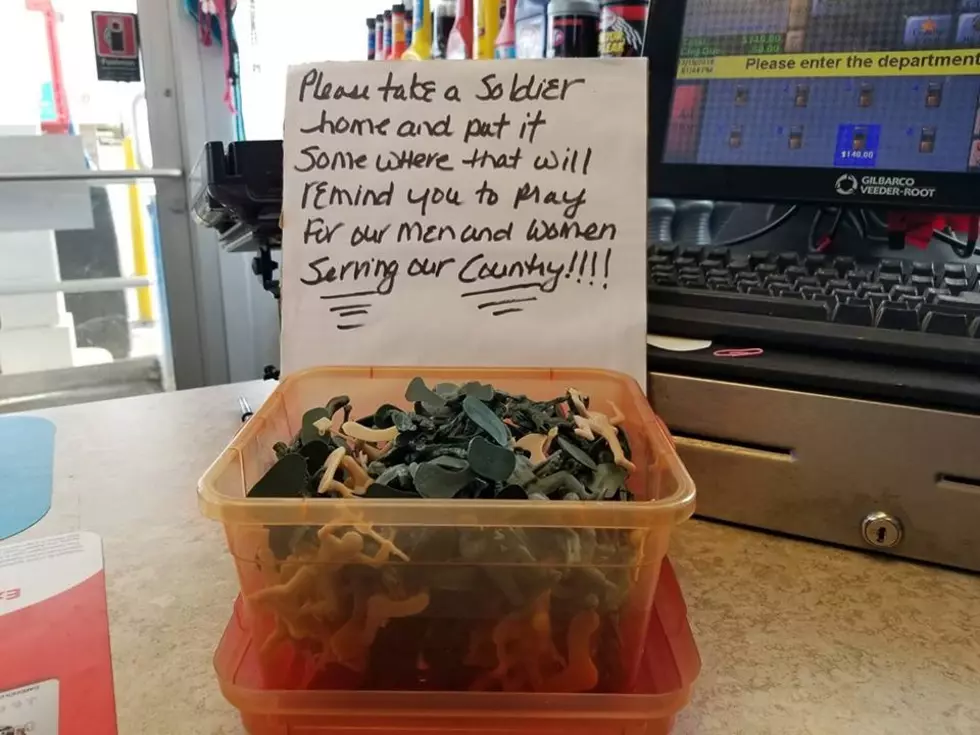 Please take a Soldier
home and put it
Some where that will
remind you to pray
For our Men and Women
Serving our Country!!!!
Please enter the department
$140.00
GILBARCO
VEEDER-ROOT